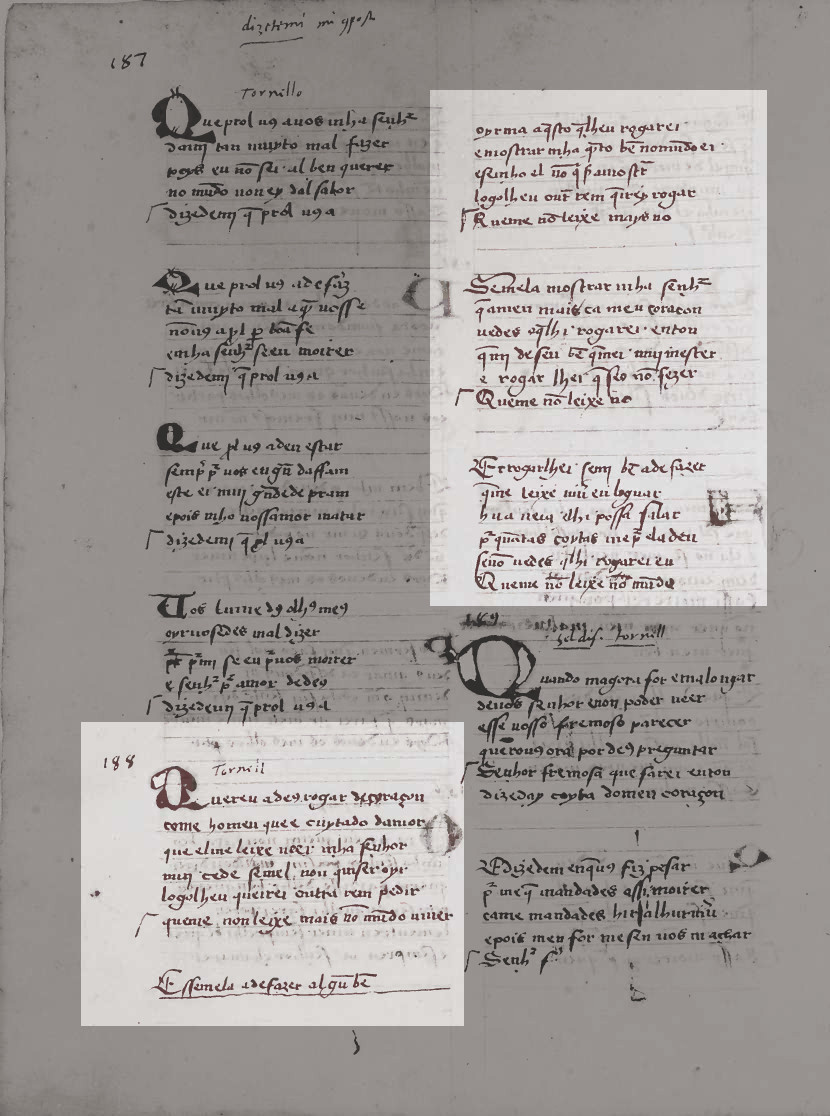 dizetemi mi
187
Tornello
Que prol uꝯ a uos mha senhʳ
damj tan muyto mal fazer
poys eu nō sei al ben querer
no mūdo non ey dal sabor
dizedemj q̄ prol uꝯ a
Que prol uꝯ a de faz̃
tā muyto mal a q̄
nō uꝯ a yl p̱ bōa fe
e mha senhʳ se eu morrer
dizedemj q̄ prol uꝯ a
Que pl uꝯ a den estar
semp̃ p̃ uos en
este er mui g̃nde de pram
e pois mho uossamor matar
dizedemj q̄ pl uꝯ a
Uos lume dꝯ olhꝯ meꝯ
oyruosedes mal dizer
p̃ mj se eu p̃ uos morrer
e senhʳ p̃ amor de deꝯ
dizedemj q̄ prol uꝯ a
188
Torneil
Quereu a deꝯ rogar de coraçon
come homen que e cuytado damor
que el me leixe ueer mha senhor
muj cede se mel non quiser oyr
logolh eu querrei outra rem pedir
que me non leixe mais no mūdo uiuer
E ssemela a de fazer algũ bē
oyrma aq̄sto q̄lheu rogarei
e mostrar mha q̃to bē no mūdo ei
e se mho el nō q̃ser amostr̃
logolh eu out̃ rem q̃rrey rogar
Que me nō leixe mays no
Se mela mostrar mha senhʳ
q̄ amen mais ca meu coraçon
uedes o q̄lhi rogarei enton
q̄ mi de seu bē q̄ mei muj mester
e rogar lhei q̄ se o nō fezer
Que me nō leixe no
E rrogarlhei se mi bē a de fazer
q̄ me leixe uiū eu logar
hu a ueia e lhi possa falar
p̃ quātas coytas me p̃ ela deu
senō uedes q̄lhi rogarei eu
Que me nō leixe no mūdo
189
tornell
Quando magora for e malongar
de uos senhor e non poder ueer
esse uosso fremoso parecer
querouꝯ ora por deꝯ preguntar
Senhor fremosa que farei enton
dizeday coyta domeu coraçon
E dizedemj en q̄ uꝯ fiz pesar
p̃ q̄ me assi mandades assi morrer
ca me mandades hir alhur uiū
e pois meu for me sen uos machar
Senhʳ fʳ